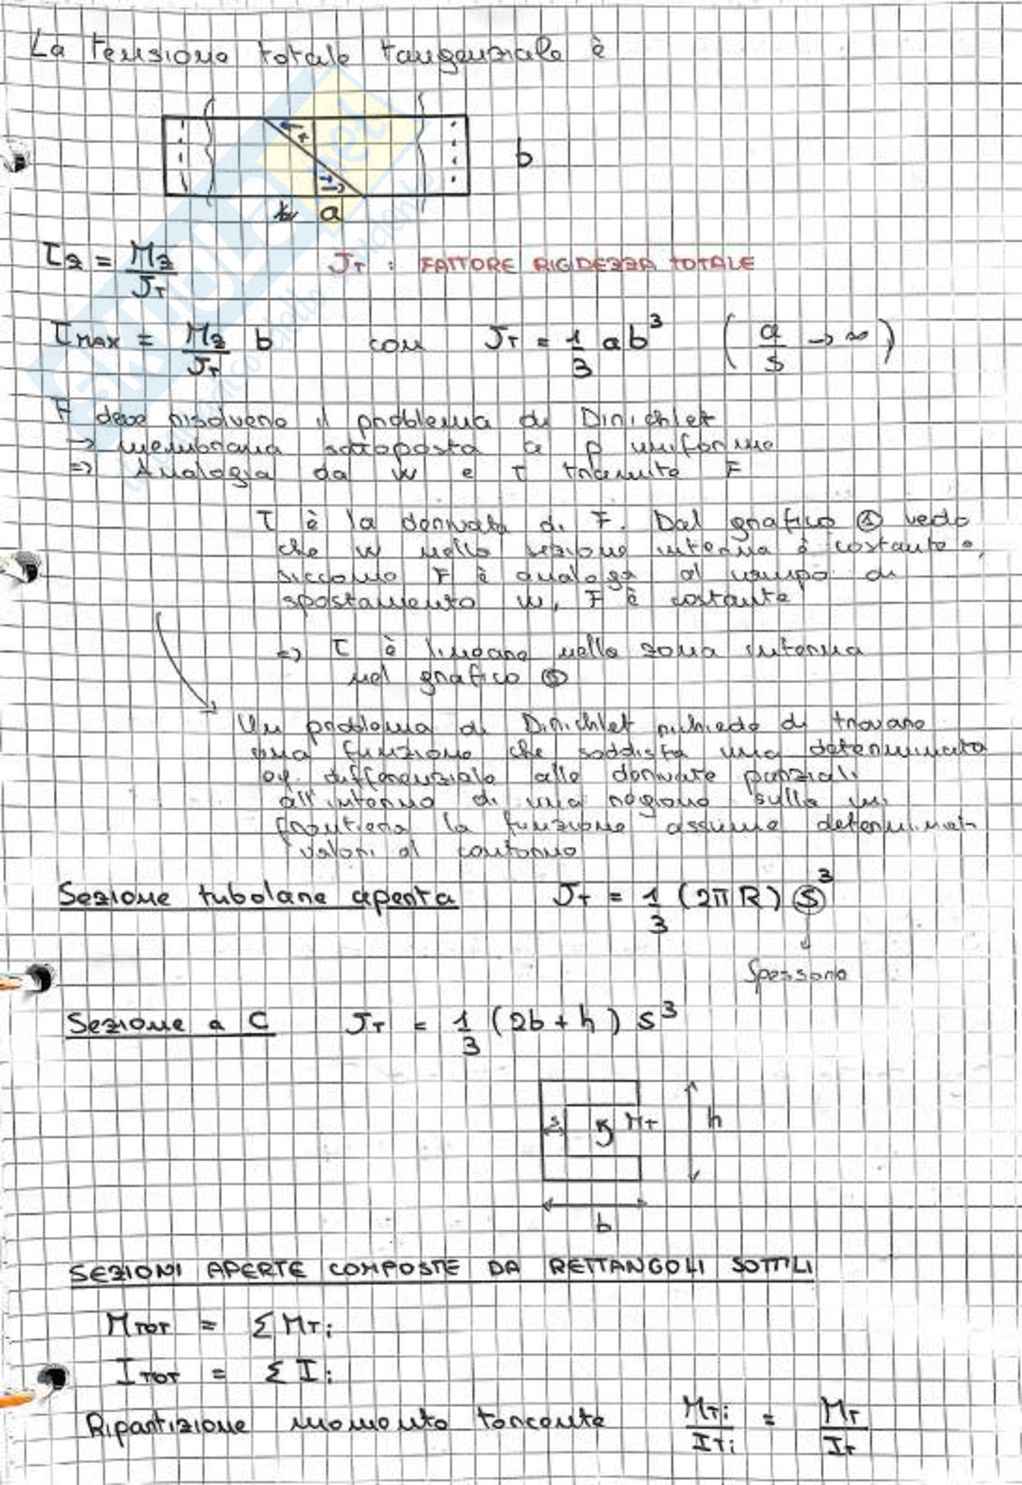 La tensione totale tangenziale è
b
a
τz = Mz / JT    JT : FATTORE RIGIDEZZA TOTALE
τMAX = Mz / JT b con JT = 1/3 ab³ ( a/s → ∞ )
F deve risolvere il problema di Dirichlet
→ membrana sottoposta a p uniforme
⇒ Analogia da w e τ tramite F
τ è la derivata di F. Dal grafico vedo
che w nella sezione interna è costante e,
siccome F è analoga al campo di
spostamento w, F è costante
⇒ τ è lineare nella zona interna
nel grafico
Un problema di Dirichlet richiede di trovare
una funzione che soddisfa una determinata
eq. differenziale alle derivate parziali
all'interno di una regione sulla cui
frontiera la funzione assume determinati
valori al contorno
Sezione tubolare aperta JT = 1/3 (2πR) s³
Spessore
Sezione a C JT = 1/3 (2b + h) s³
s MT h
b
SEZIONI APERTE COMPOSTE DA RETTANGOLI SOTTILI
MTOT = Σ MTi
ITOT = Σ Ii
Ripartizione momento torcente MTi / ITi = MT / IT